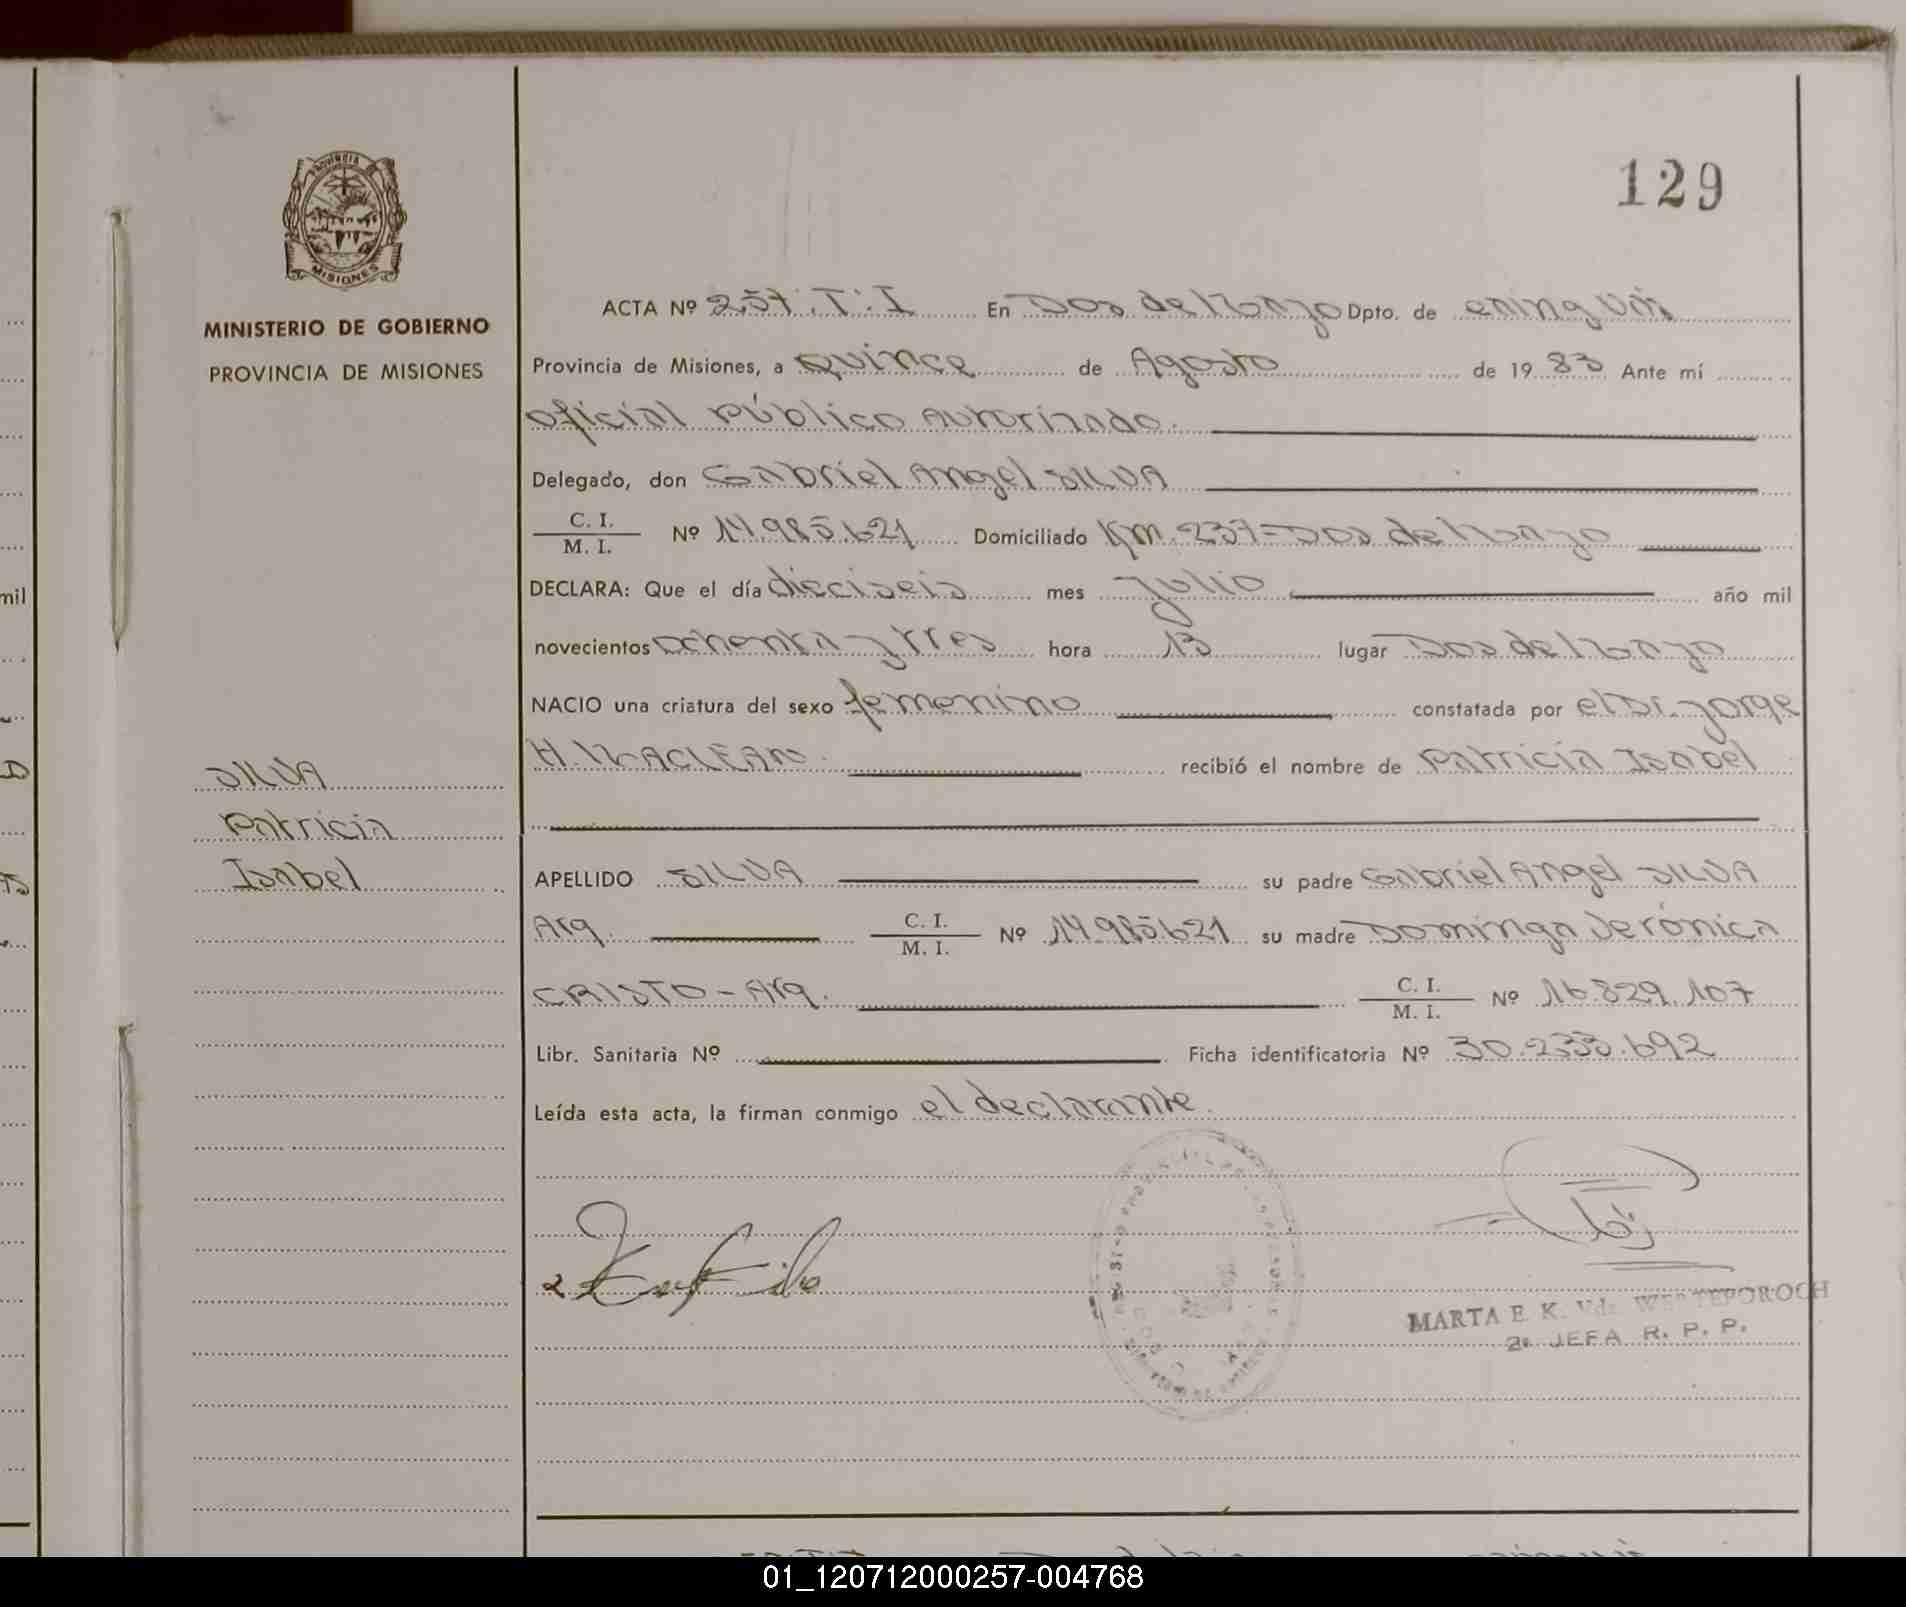 129
PROVINCIA
MISIONES
MINISTERIO DE GOBIERNO
PROVINCIA DE MISIONES
ACTA Nº 257.T:I En Dos de Mayo Dpto. de
Provincia de Misiones, a Quince de Agosto de 19 83 Ante mí
Oficial Público Autorizado.
Delegado, don Gabriel Angel SILVA
C. I.
M. I. Nº 14.985.621 Domiciliado Km. 237-Dos de Mayo
DECLARA: Que el día dieciseis mes Julio año mil
novecientos Ochenta y tres hora 13 lugar Dos de Mayo
NACIO una criatura del sexo femenino constatada por el Dr. Jorge
H. MACLEAN. recibió el nombre de Patricia Isabel
SILVA
Patricia
Isabel
APELLIDO SILVA su padre Gabriel Angel SILVA
Arg. C. I.
M. I. Nº 14.985.621 su madre Dominga Verónica
CRISTO - Arg. C. I.
M. I. Nº 16.829.107
Libr. Sanitaria Nº Ficha identificatoria Nº 30.233.692
Leída esta acta, la firman conmigo el declarante.
MARTA E. K. Vda. WESTEPOROCH
2a JEFA R. P. P.
mil
01_120712000257-004768